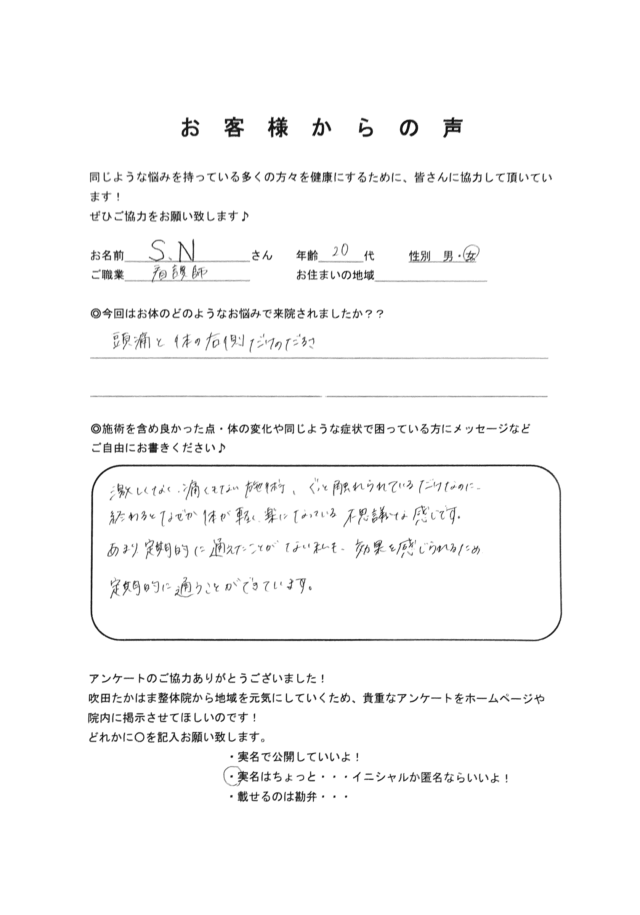 お客様からの声
同じような悩みを持っている多くの方々を健康にするために、皆さんに協力して頂いてい
ます!
ぜひご協力をお願い致します♪
お名前 S.N さん 年齢 20 代 性別 男・女
ご職業 看護師 お住まいの地域
◎今回はお体のどのようなお悩みで来院されましたか??
頭痛と体の右側だけのだるさ
◎施術を含め良かった点・体の変化や同じような症状で困っている方にメッセージなど
ご自由にお書きください♪
激しくなく、痛くもない施術、ぐっと触れられているだけなのに、
終わるとなぜか体が軽く、楽になっている不思議な感じです。
あまり定期的に通えたことがない私も、効果を感じられるため
定期的に通うことができています。
アンケートのご協力ありがとうございました!
吹田たかはま整体院から地域を元気にしていくため、貴重なアンケートをホームページや
院内に掲示させてほしいのです!
どれかに〇を記入お願い致します。
・実名で公開していいよ!
・実名はちょっと・・・イニシャルか匿名ならいいよ!
・載せるのは勘弁・・・